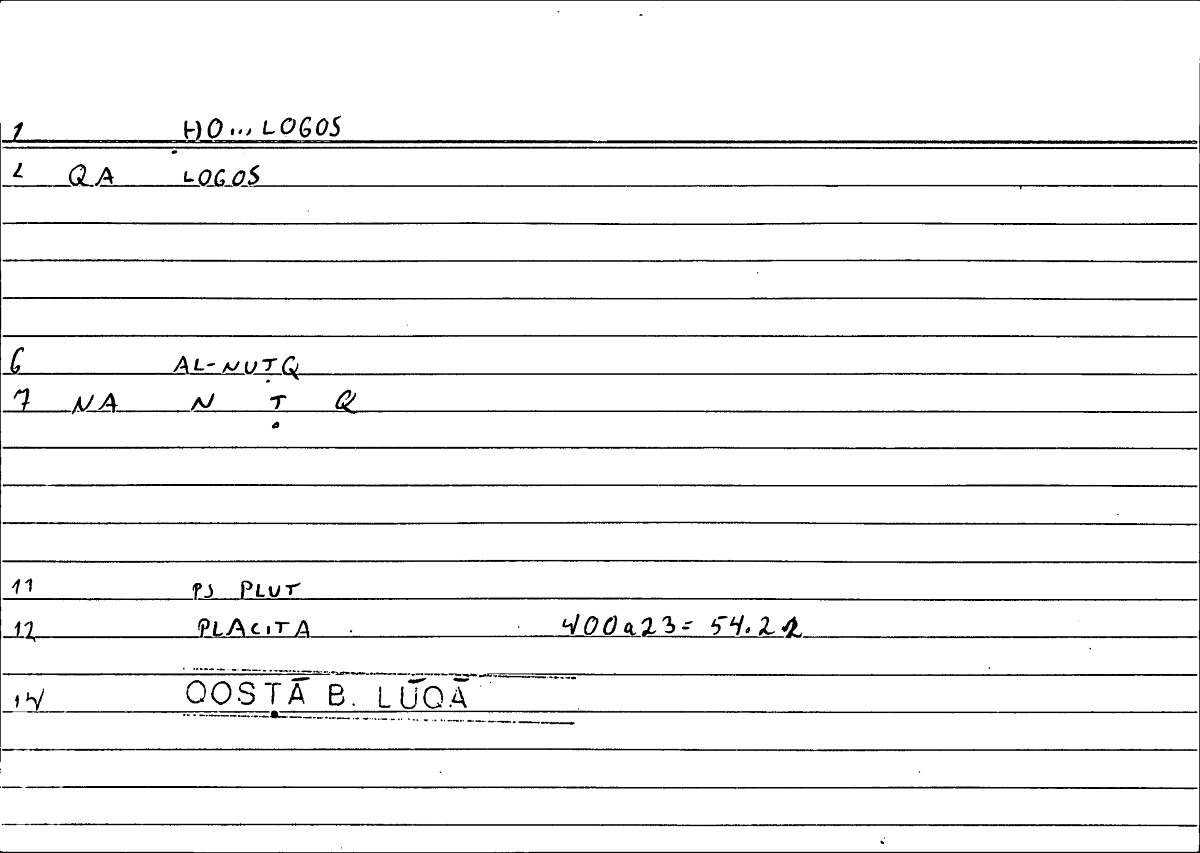 1 HO... LOGOS
2 QA LOGOS
6 AL-NUṬQ
7 NA N Ṭ Q
11 PS PLUT
12 PLACITA 400a23= 54.22
14 QOSṬĀ B. LŪQĀ